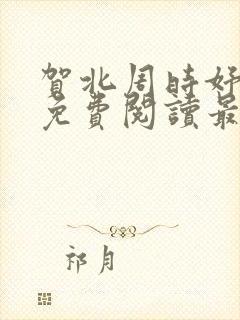 賀北周時好
免費閱讀最
祁月